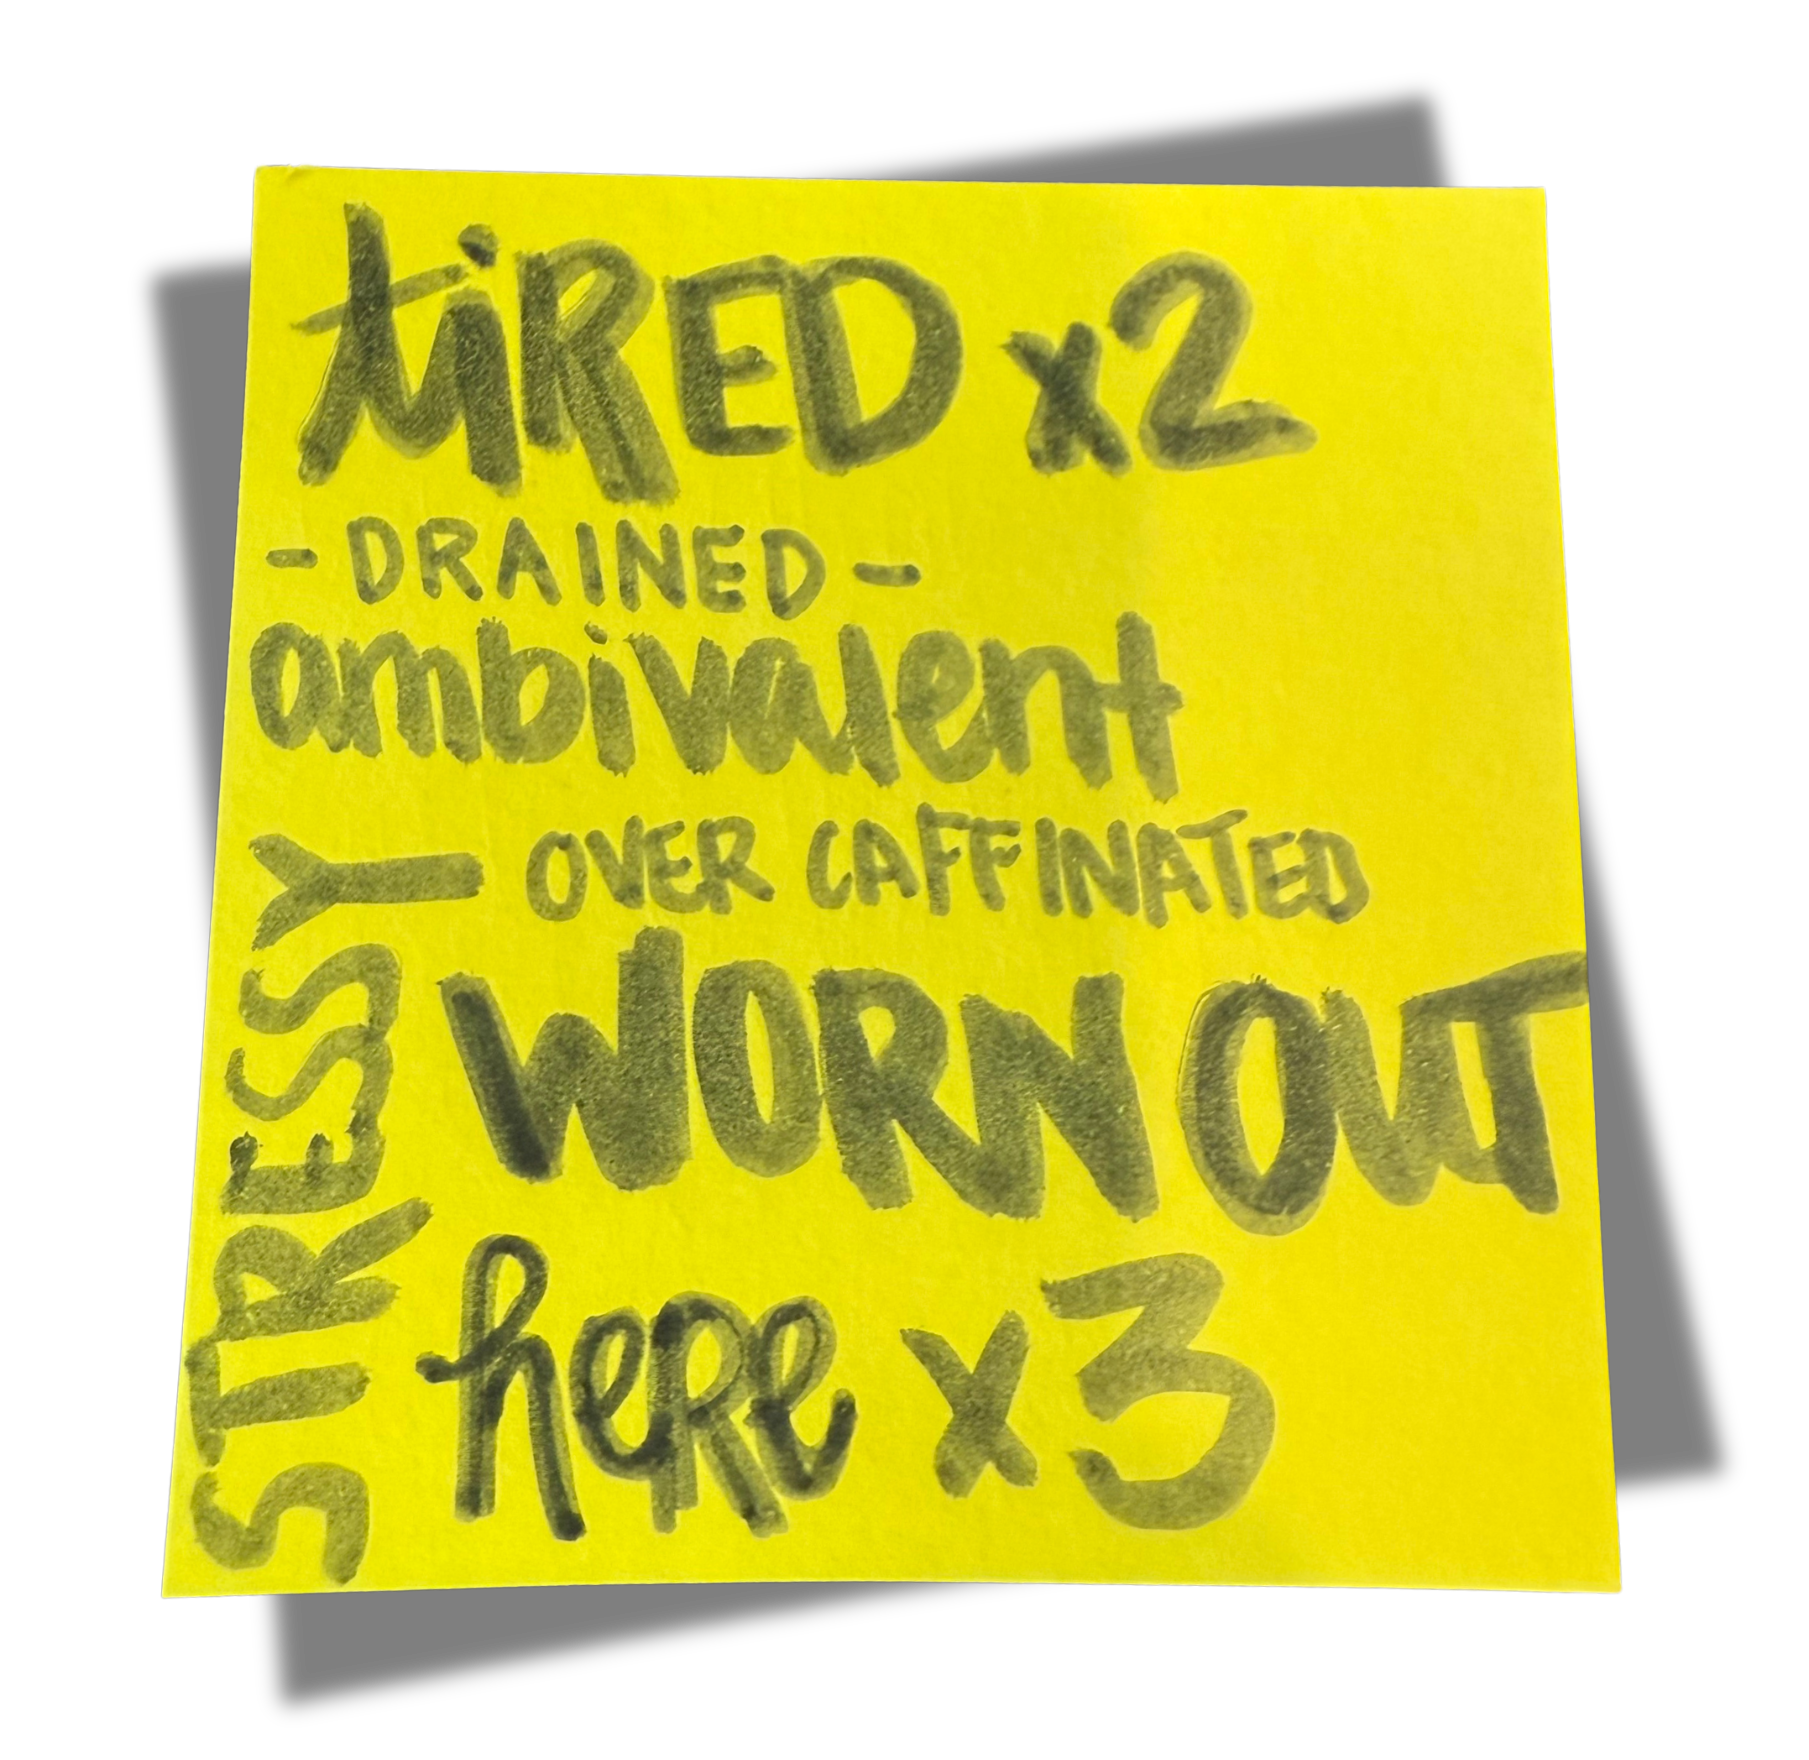 tiRED x2
- DRAINED -
ambivalent
OVER CAFFINATED
STRESSY
WORN OUT
heRe x3